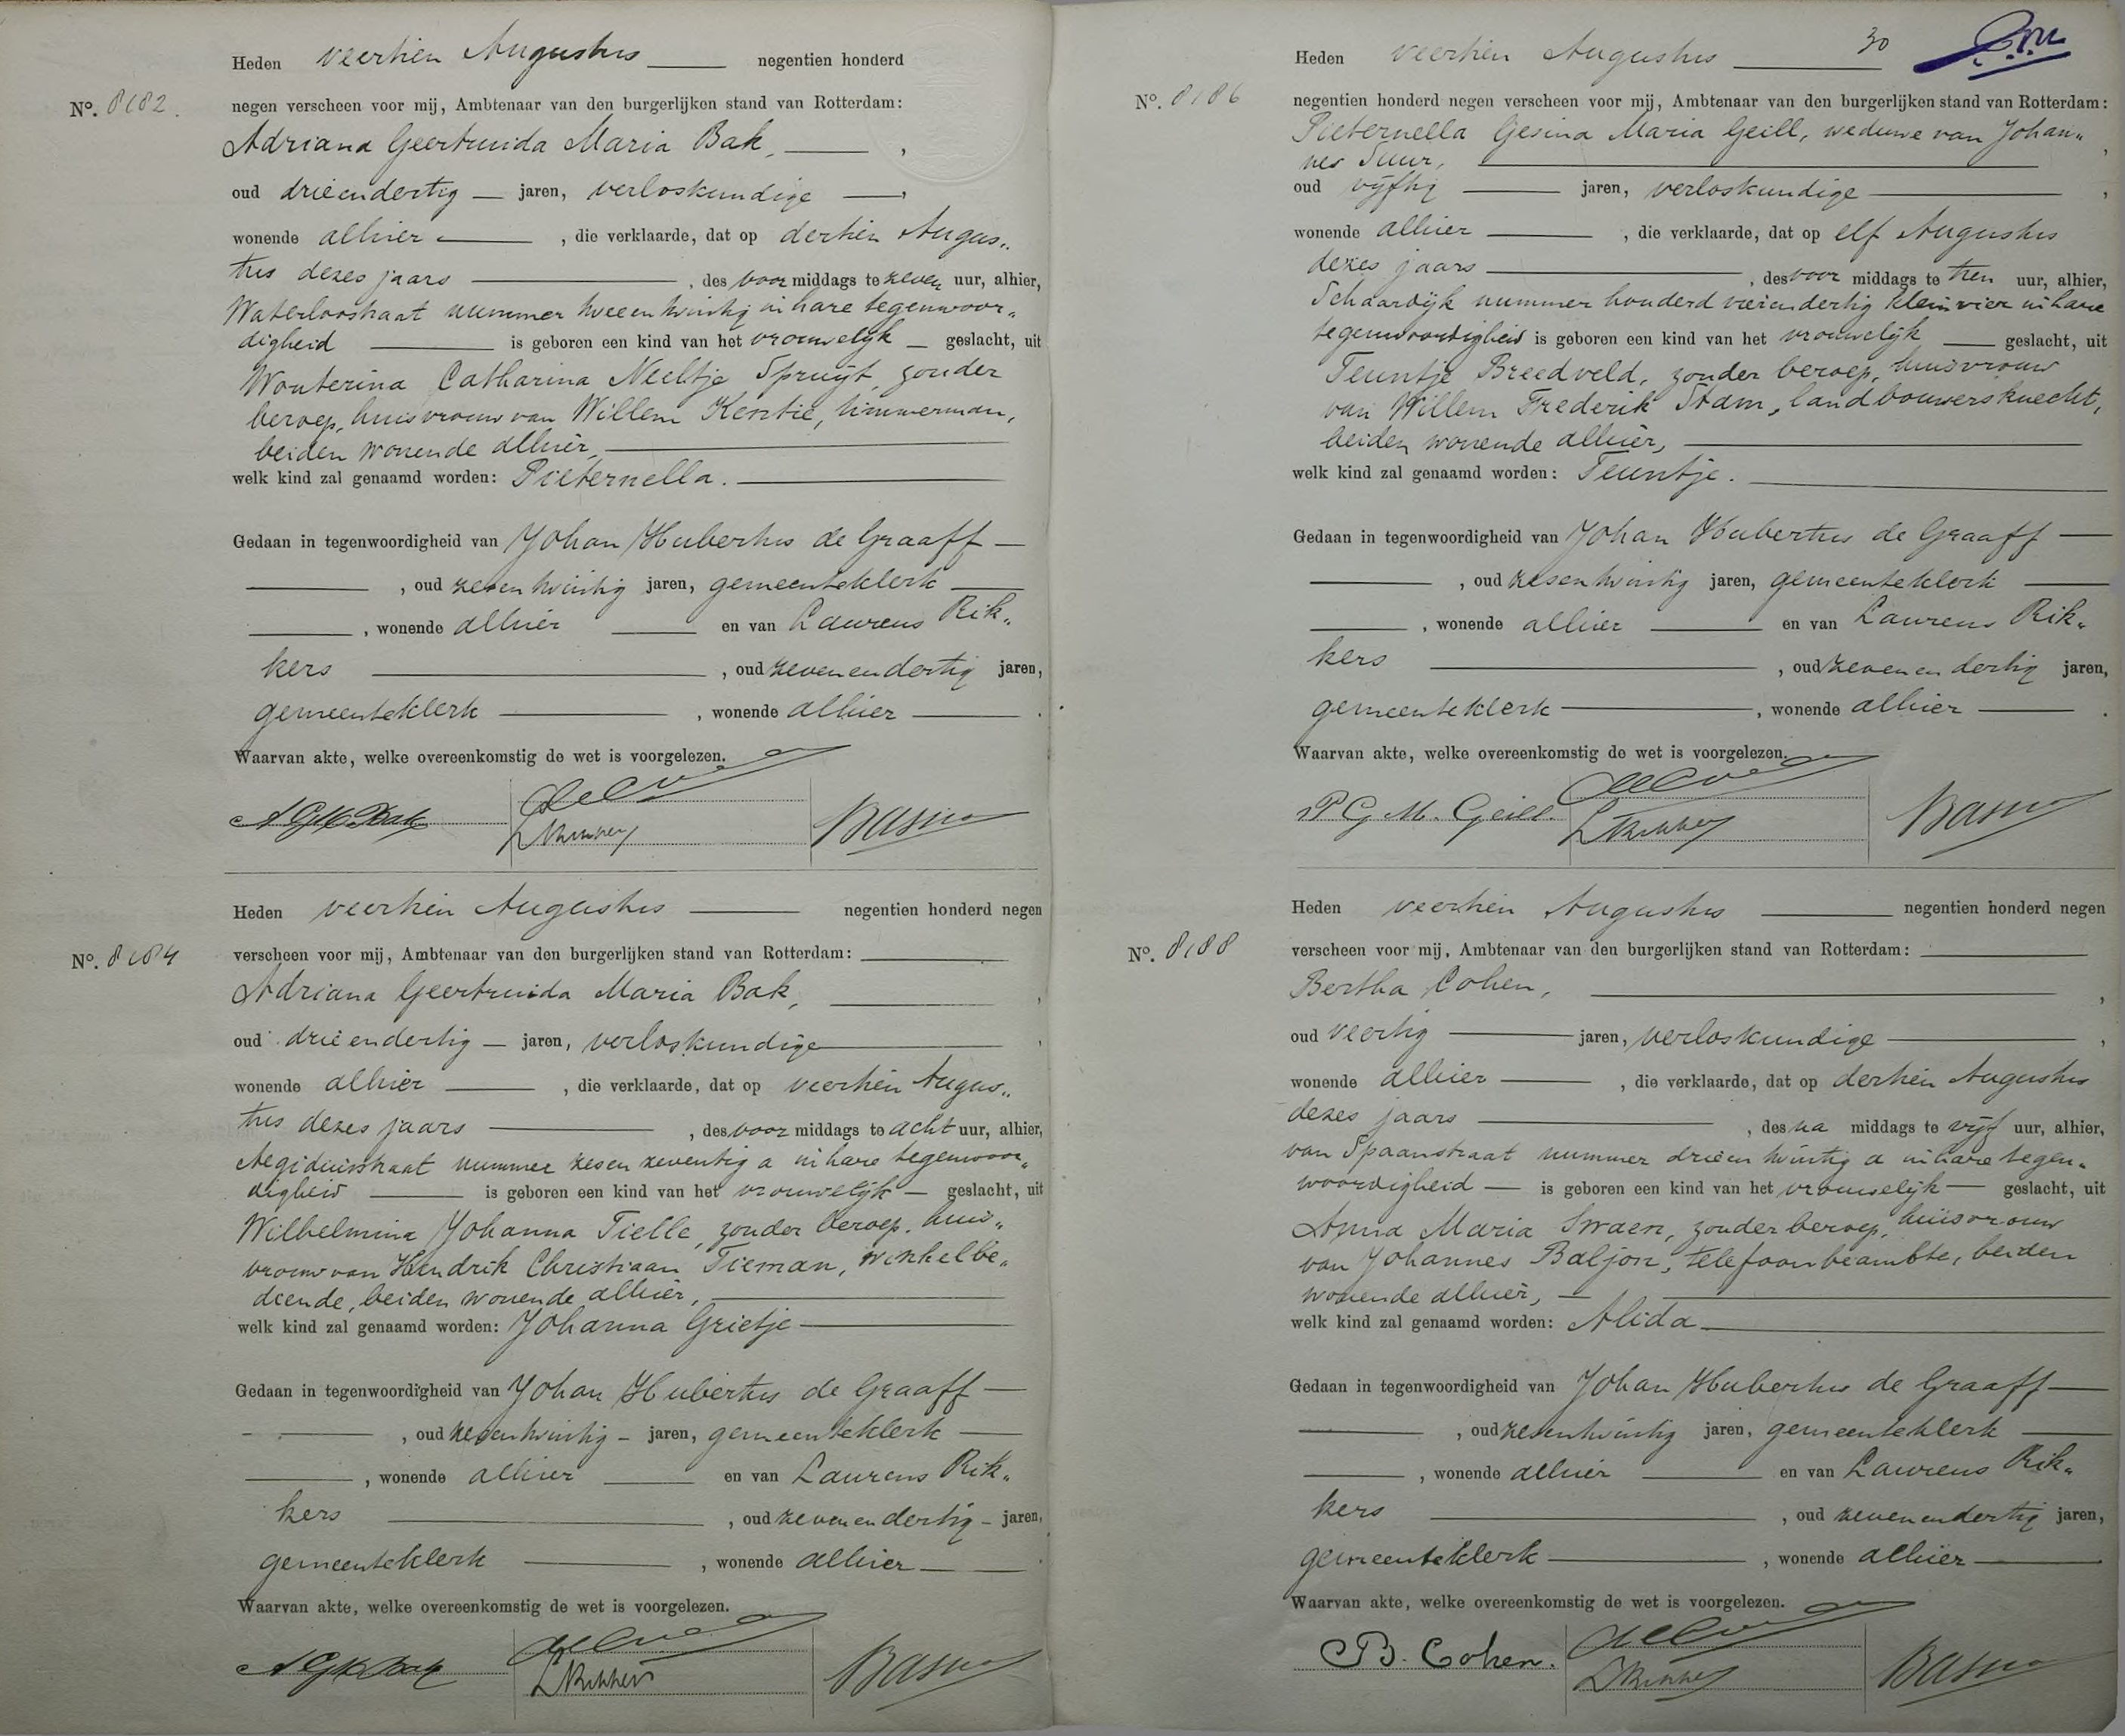 Heden veertien Augustus negentien honderd
No. 8182.
negen verscheen voor mij, Ambtenaar van den burgerlijken stand van Rotterdam:
Adriana Geertruida Maria Bak, ,
oud drieendertig jaren, verloskundige ,
wonende alhier , die verklaarde, dat op dertien Augus„
tus dezes jaars , des voor middags te zeven uur, alhier,
Waterloostraat nummer tweentwintig in hare tegenwoor„
digheid is geboren een kind van het vrouwelijk geslacht, uit
Wouterina Catharina Neeltje Spruijt, zonder
beroep, huisvrouw van Willem Kentie, timmerman,
beiden wonende alhier,
welk kind zal genaamd worden: Pieternella.
Gedaan in tegenwoordigheid van Johan Hubertus de Graaff
, oud zesentwintig jaren, gemeenteklerk
, wonende alhier en van Laurens Rik„
kers , oud zevenendertig jaren,
gemeenteklerk , wonende alhier .
Waarvan akte, welke overeenkomstig de wet is voorgelezen.
A G M Bak
L Rikkers
Heden veertien Augustus negentien honderd negen
No. 8184
verscheen voor mij, Ambtenaar van den burgerlijken stand van Rotterdam:
Adriana Geertruida Maria Bak, ,
oud drieendertig jaren, verloskundige ,
wonende alhier , die verklaarde, dat op veertien Augus„
tus dezes jaars , des voor middags te acht uur, alhier,
Aegidiusstraat nummer zesenzeventig a in hare tegenwoor„
digheid is geboren een kind van het vrouwelijk geslacht, uit
Wilhelmina Johanna Tielle, zonder beroep, huis„
vrouw van Hendrik Christiaan Tieman, winkelbe„
diende, beiden wonende alhier,
welk kind zal genaamd worden: Johanna Grietje
Gedaan in tegenwoordigheid van Johan Hubertus de Graaff
, oud zesentwintig jaren, gemeenteklerk
, wonende alhier en van Laurens Rik„
kers , oud zevenendertig jaren,
gemeenteklerk , wonende alhier .
Waarvan akte, welke overeenkomstig de wet is voorgelezen.
A G M Bak
L Rikkers
30
Heden veertien Augustus
No. 8186
negentien honderd negen verscheen voor mij, Ambtenaar van den burgerlijken stand van Rotterdam:
Pieternella Gesina Maria Geill, weduwe van Johan„
nes Suur, ,
oud vijftig jaren, verloskundige ,
wonende alhier , die verklaarde, dat op elf Augustus
dezes jaars , des voor middags te tien uur, alhier,
Schaardijk nummer honderd vierendertig klein vier in hare
tegenwoordigheid is geboren een kind van het vrouwelijk geslacht, uit
Teuntje Breedveld, zonder beroep, huisvrouw
van Willem Frederik Stam, landbouwersknecht,
beiden wonende alhier,
welk kind zal genaamd worden: Teuntje.
Gedaan in tegenwoordigheid van Johan Hubertus de Graaff
, oud zesentwintig jaren, gemeenteklerk
, wonende alhier en van Laurens Rik„
kers , oud zevenendertig jaren,
gemeenteklerk , wonende alhier .
Waarvan akte, welke overeenkomstig de wet is voorgelezen.
P G M. Geill.
L Rikkers
Heden veertien Augustus negentien honderd negen
No. 8188
verscheen voor mij, Ambtenaar van den burgerlijken stand van Rotterdam:
Bertha Cohen, ,
oud veertig jaren, verloskundige ,
wonende alhier , die verklaarde, dat op dertien Augustus
dezes jaars , des na middags te vijf uur, alhier,
van Spaanstraat nummer drieentwintig a in hare tegen„
woordigheid is geboren een kind van het vrouwelijk geslacht, uit
Anna Maria Swaen, zonder beroep, huisvrouw
van Johannes Baljon, telefoonbeambte, beiden
wonende alhier,
welk kind zal genaamd worden: Alida
Gedaan in tegenwoordigheid van Johan Hubertus de Graaff
, oud zesentwintig jaren, gemeenteklerk
, wonende alhier en van Laurens Rik„
kers , oud zevenendertig jaren,
gemeenteklerk , wonende alhier
Waarvan akte, welke overeenkomstig de wet is voorgelezen.
B. Cohen.
L Rikkers